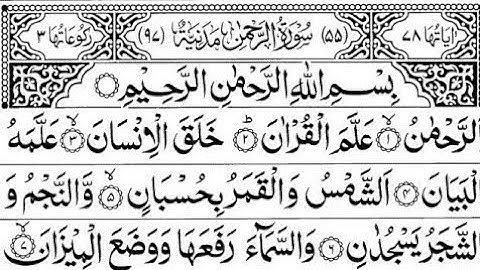 اٰيَاتُهَا ٧٨ (٥٥) سُوْرَةُ الرَّحْمٰنِ مَدَنِيَّةٌ (٩٧) رُكُوْعَاتُهَا ٣
بِسْمِ اللّٰهِ الرَّحْمٰنِ الرَّحِيْمِ
اَلرَّحْمٰنُ ۙ﴿۱﴾ عَلَّمَ الْقُرْاٰنَ ؕ﴿۲﴾ خَلَقَ الْاِنْسَانَ ۙ﴿۳﴾ عَلَّمَهُ
الْبَيَانَ ﴿۴﴾ اَلشَّمْسُ وَالْقَمَرُ بِحُسْبَانٍ ۙ﴿۵﴾ وَّالنَّجْمُ وَ
الشَّجَرُ يَسْجُدٰنِ ﴿۶﴾ وَالسَّمَآءَ رَفَعَهَا وَوَضَعَ الْمِيْزَانَ ۙ﴿۷﴾